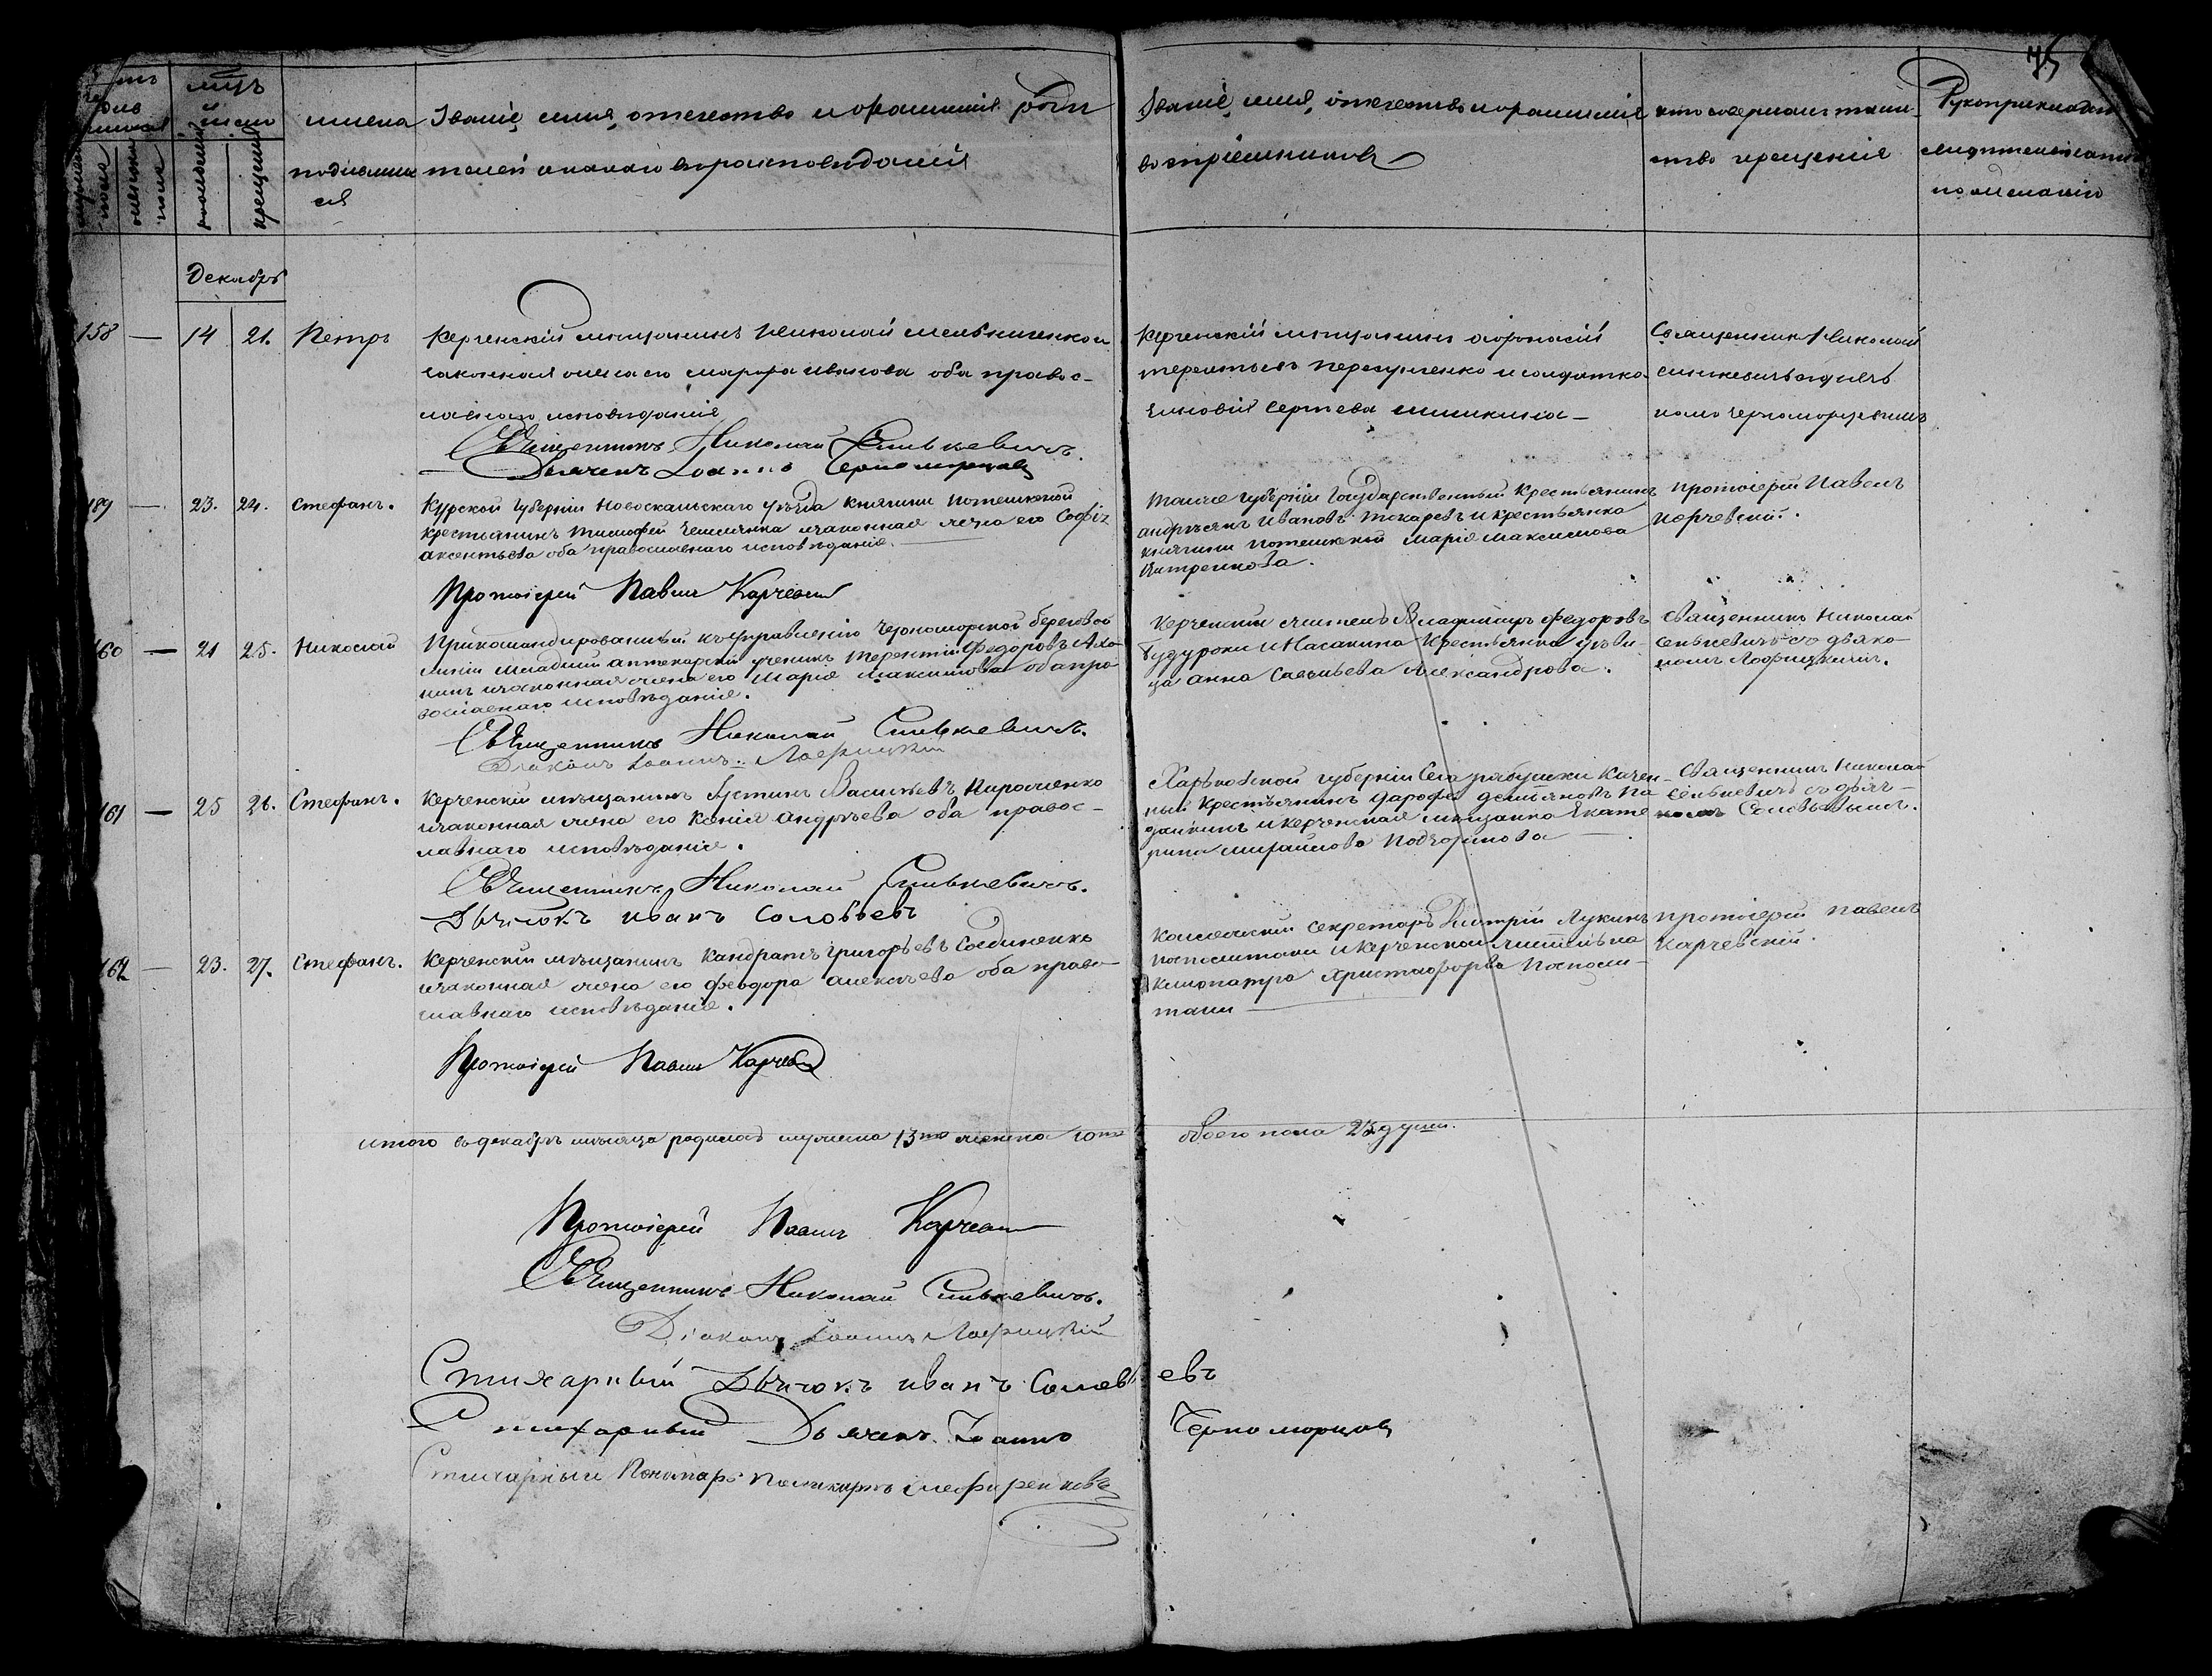 75
имена
родивших
ся
Званіе, имя, отечество и фамилія роди
телей и какаго вѣроисповѣданія
Званіе, имя, отечество и фамилія
воспріемниковъ
кто совершалъ таин-
ство крещенія
Рукоприкладст
свидѣтелей записи
по желанію
Декабрь
158 — 14 21. Петръ
Керченскій мѣщанинъ Николай Мельниченко и
законная жена его Марфа Иванова оба правос-
лавнаго исповѣданія
Священникъ Николай Синькевичъ.
Дьячекъ Іоаннъ Черноморцовъ
Керченскій мѣщанинъ Афонасій
Терентьевъ и солдатка
Зиновія Сергѣева Шишкина —
Священникъ Николай
Синкевичъ съ дьяч
комъ Черноморцевымъ
159 — 23. 24. Стефанъ.
Курской губерніи Новоскальскаго уѣзда княгини Потемкиной
крестьянинъ Тимофей и законная жена его Софія
Аксентьева оба православнаго исповѣданія.
Протоіерей Павелъ Карчевскій
Тойже губерніи Государственный крестьянинъ
Андреянъ Ивановъ Токаревъ и крестьянка
княгини Потемкиной Марія Максимова
Протоіерей Павелъ
Карчевскій.
160 — 21 25. Николай
Прикомандированный къ управленію Черноморской береговой
линіи младшій аптекарскій ученикъ Терентій Федоровъ
и законная жена его Марія Максимова оба пра
вославнаго исповѣданія.
Священникъ Николай Синькевичъ.
Діаконъ Іоаннъ Лофицкій
Керченскій житель Владиміръ Федоровъ
и крестьянка дѣви-
ца Анна Савельева Александрова.
Священникъ Николай
Сенькевичъ съ дьяко-
номъ Лофицкимъ.
161 — 25 26. Стефанъ.
Керченскій мѣщанинъ Іустинъ Васильевъ Мирошенко
и законная жена его Ксенія Андрѣева оба правос-
лавнаго исповѣданія.
Священникъ Николай Синькевичъ.
Дьячокъ Иванъ Соловьевъ
Харьковской губерніи Казен-
ный крестьянинъ Дарофей Демьяновъ
и Керченская мѣщанка Екате
рина Михайлова
Священникъ Николай
Сенькевичъ съ дьяч-
комъ Соловьевымъ.
162 — 23. 27. Стефанъ.
Керченскій мѣщанинъ Кандратъ Григорьевъ Соединенко
и законная жена его Феодора Алексѣева оба право-
славнаго исповѣданія.
Протоіерей Павелъ Карчевскій
Колежскій секретарь Дмитрій Лукинъ
Посполитаки и Керченская жительница
Клиопатра Христофорова Посполи-
таки —
Протоіерей Павелъ
Карчевскій.
итого въ декабрѣ мѣсяца родилось мужеска 13 женска 10
обоего пола 23 души.
Протоіерей Павелъ Карчевскій
Священникъ Николай Синькевичъ.
Діаконъ Іоаннъ Лофицкій
Стихарный Дьячокъ Иванъ Соловьевъ
Стихарный Дьячекъ Іоаннъ Черноморцовъ
Стихарный Пономарь Поликарпъ